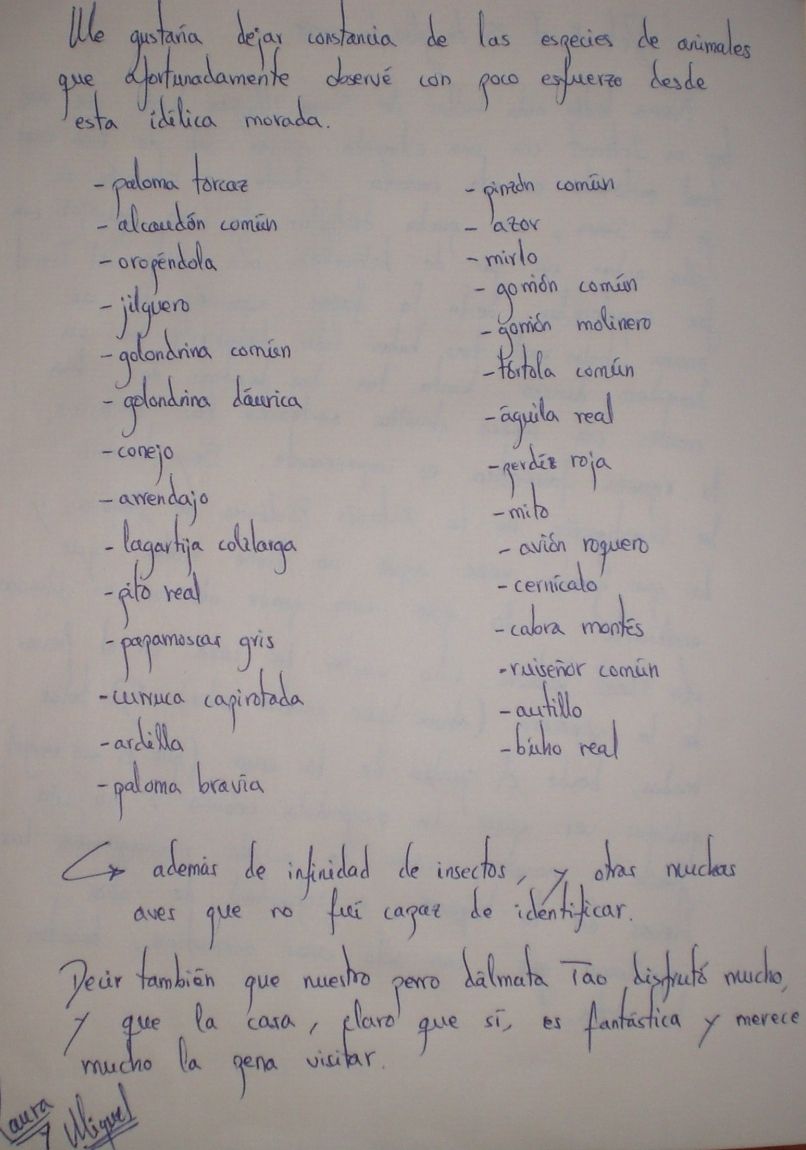 Me gustaría dejar constancia de las especies de animales
que afortunadamente observé con poco esfuerzo desde
esta idílica morada.
- paloma torcaz
- alcaudón común
- oropéndola
- jilguero
- golondrina común
- golondrina dáurica
- conejo
- arrendajo
- lagartija colilarga
- pito real
- papamoscas gris
- curruca capirotada
- ardilla
- paloma bravía
- pinzón común
- azor
- mirlo
- gorrión común
- gorrión molinero
- tórtola común
- águila real
- perdiz roja
- mito
- avión roquero
- cernícalo
- cabra montés
- ruiseñor común
- autillo
- búho real
↳ además de infinidad de insectos, y otras muchas
aves que no fui capaz de identificar.
Decir también que nuestro perro dálmata Tao disfrutó mucho,
y que la casa, claro que sí, es fantástica y merece
mucho la pena visitar.
Laura
y Miguel